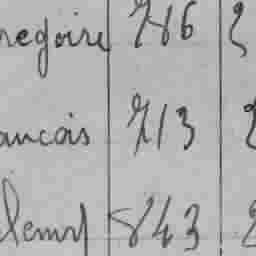 regoire 746 2
ancois 713 2
lemy 843 2